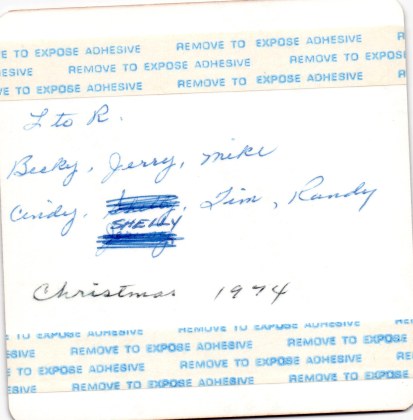 E TO EXPOSE ADHESIVE REMOVE TO EXPOSE ADHESIVE
ESIVE REMOVE TO EXPOSE ADHESIVE REMOVE
VE TO EXPOSE ADHESIVE REMOVE TO EXPOSE ADHESIVE
L to R.
Becky, Jerry, Mike
Cindy, SHELLY, Tim, Randy
Christmas 1974
VE TO EXPOSE ADHESIVE REMOVE TO EXPOSE ADHESIVE
ESIVE REMOVE TO EXPOSE ADHESIVE REMOVE
VE TO EXPOSE ADHESIVE REMOVE TO EXPOSE ADHESIVE
ESIVE REMOVE TO EXPOSE ADHESIVE REMOVE